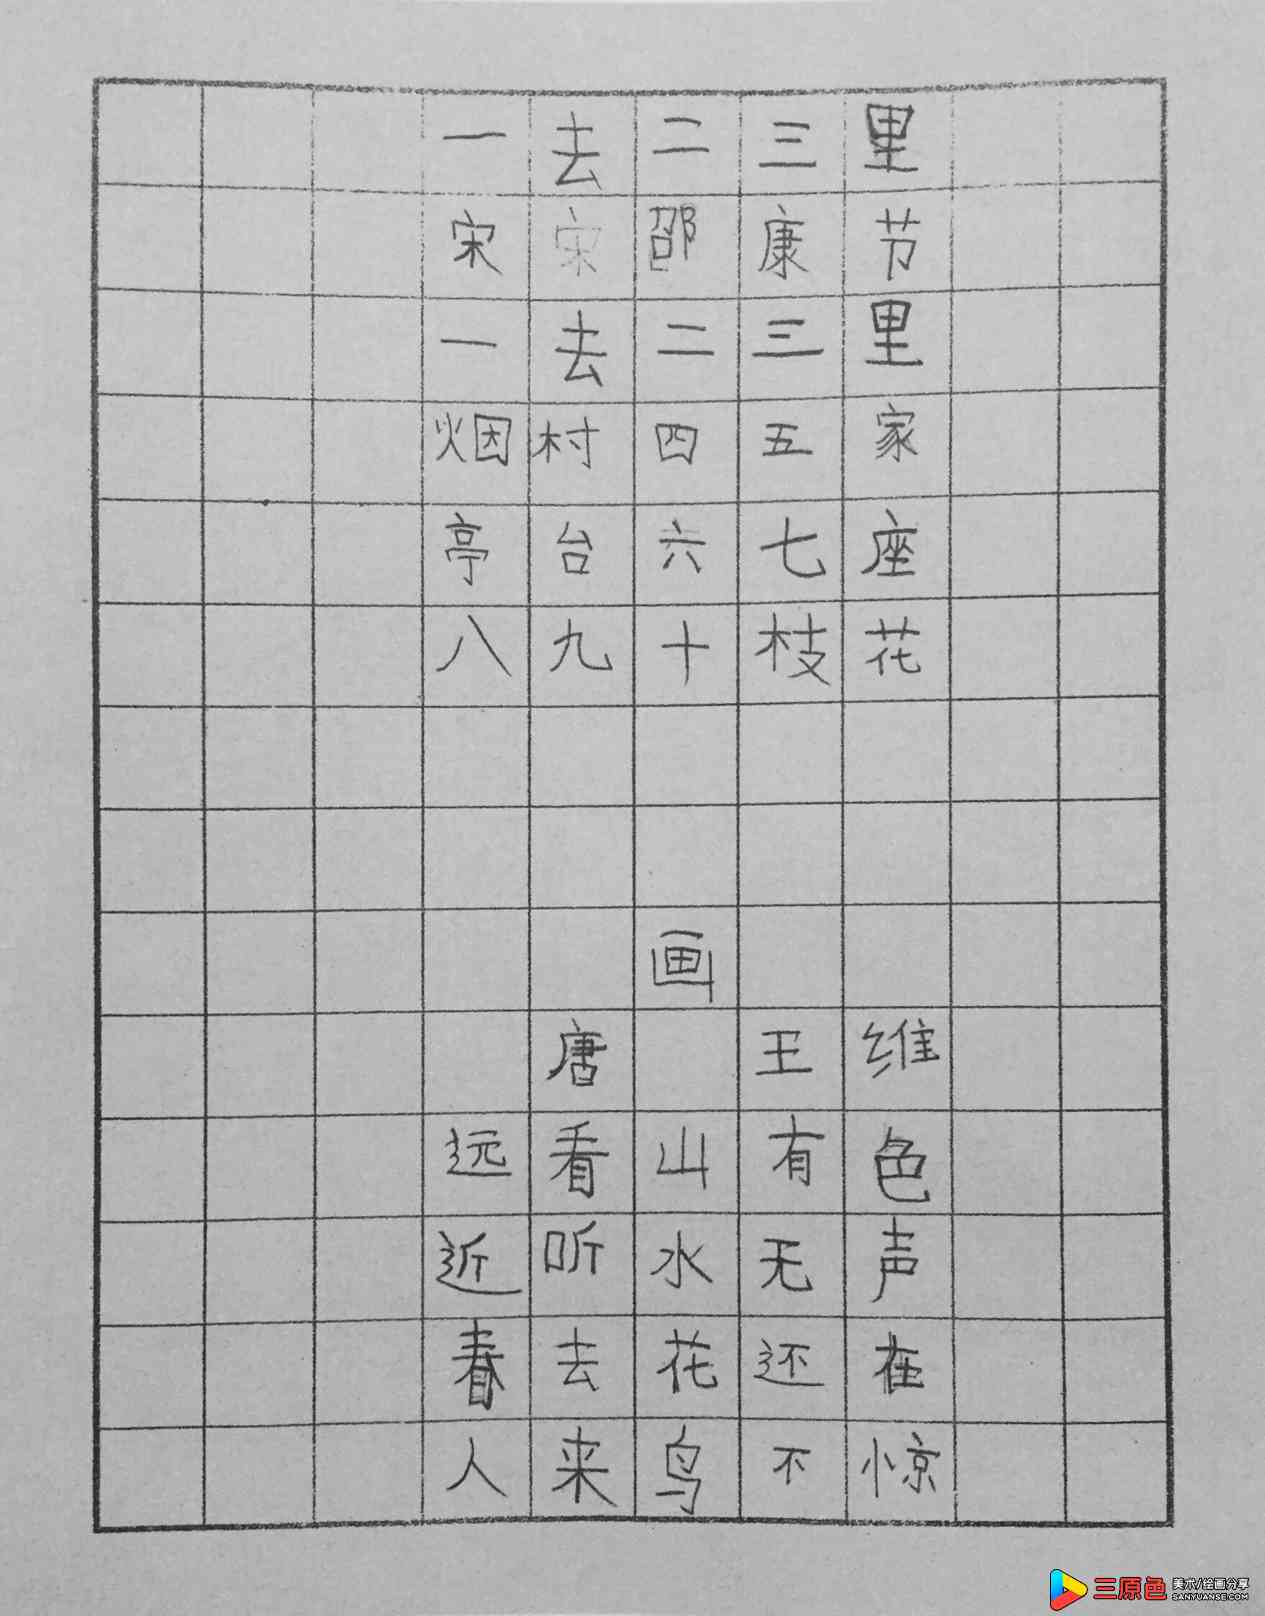 一去二三里
宋宋邵康节
一去二三里
烟村四五家
亭台六七座
八九十枝花
画
唐王维
远看山有色
近听水无声
春去花还在
人来鸟不惊
三原色
美术/绘画分享
SANYUANSE.COM